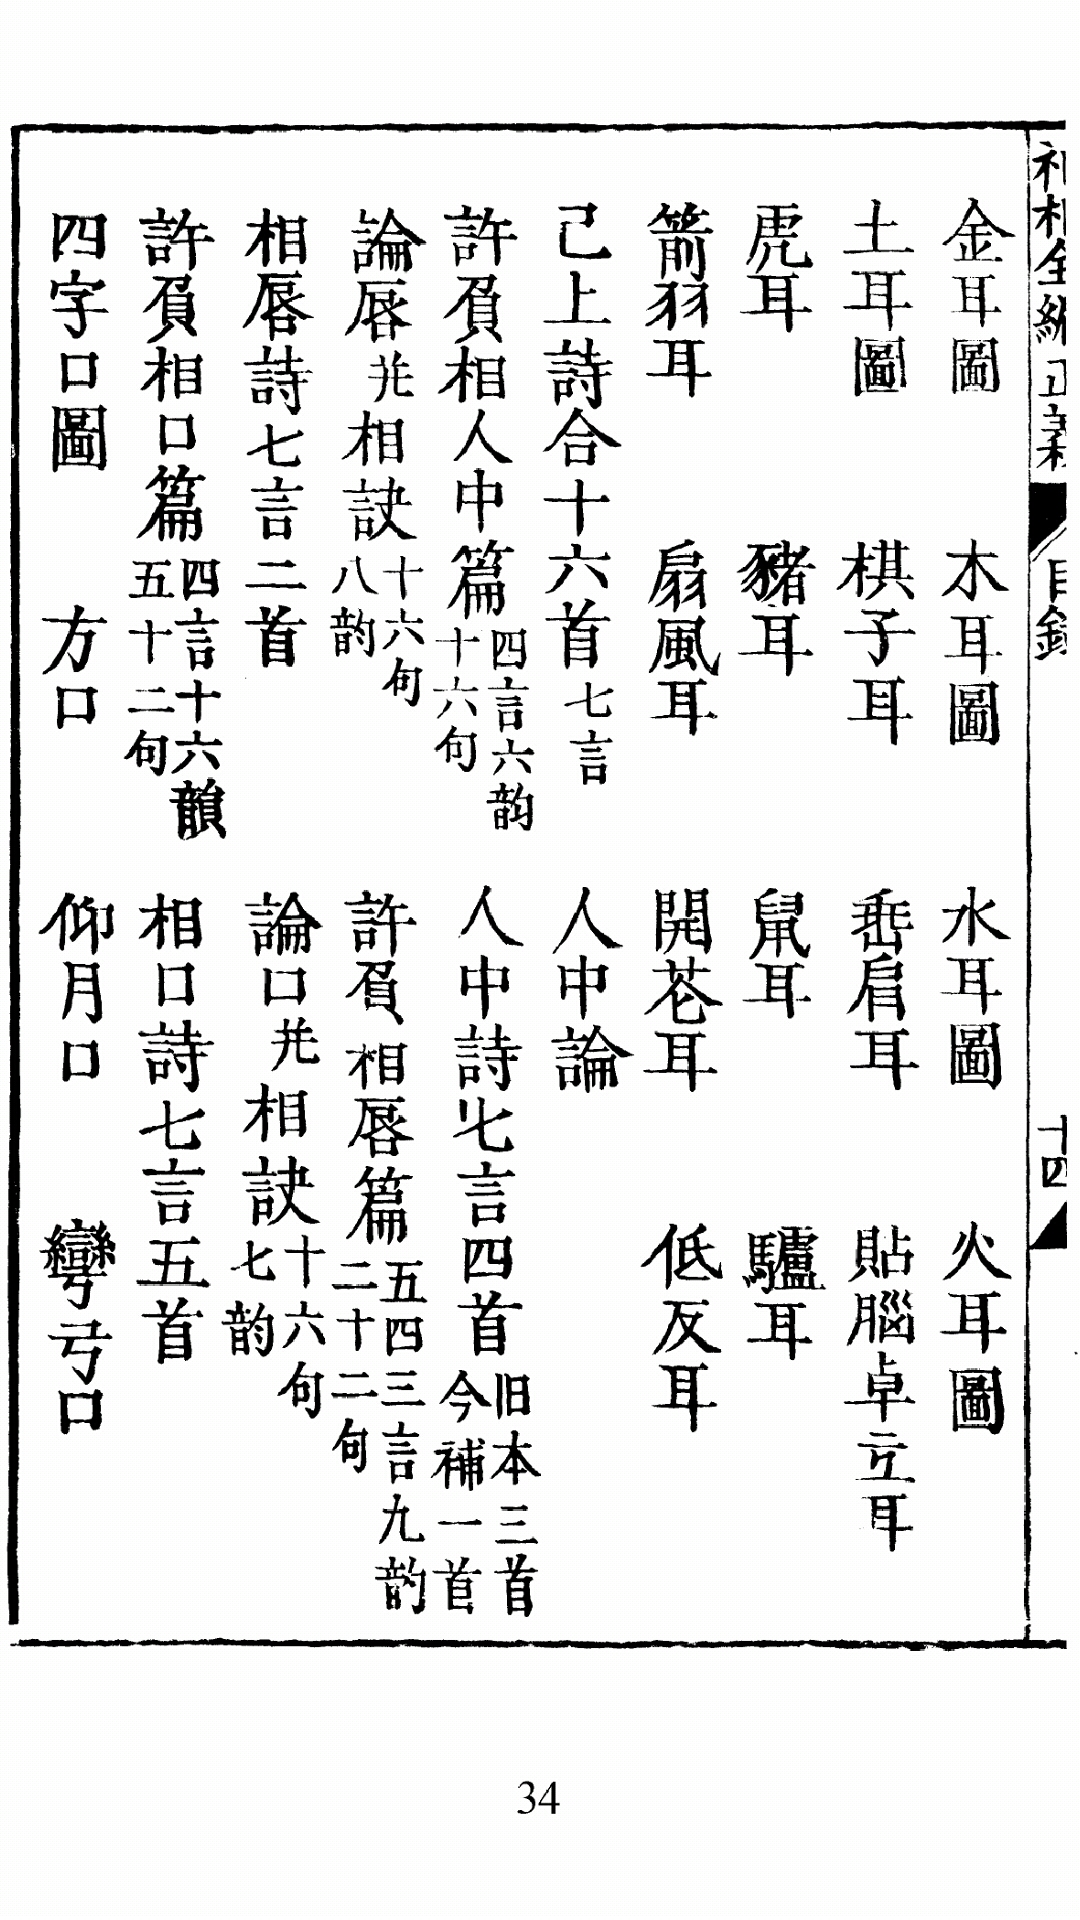 神相全編正義 目錄 十四
金耳圖 木耳圖 水耳圖 火耳圖
土耳圖 棋子耳 垂肩耳 貼腦卓立耳
虎耳 豬耳 鼠耳 驢耳
箭羽耳 扇風耳 開花耳 低反耳
已上詩合十六首七言 人中論
許負相人中篇四言六韵十六句 人中詩七言四首旧本三首今補一首
論唇并相訣十六句八韵 許負相唇篇五四三言九韵二十二句
相唇詩七言二首 論口并相訣十六句七韵
許負相口篇四言十六韻五十二句 相口詩七言五首
四字口圖 方口 仰月口 彎弓口
34